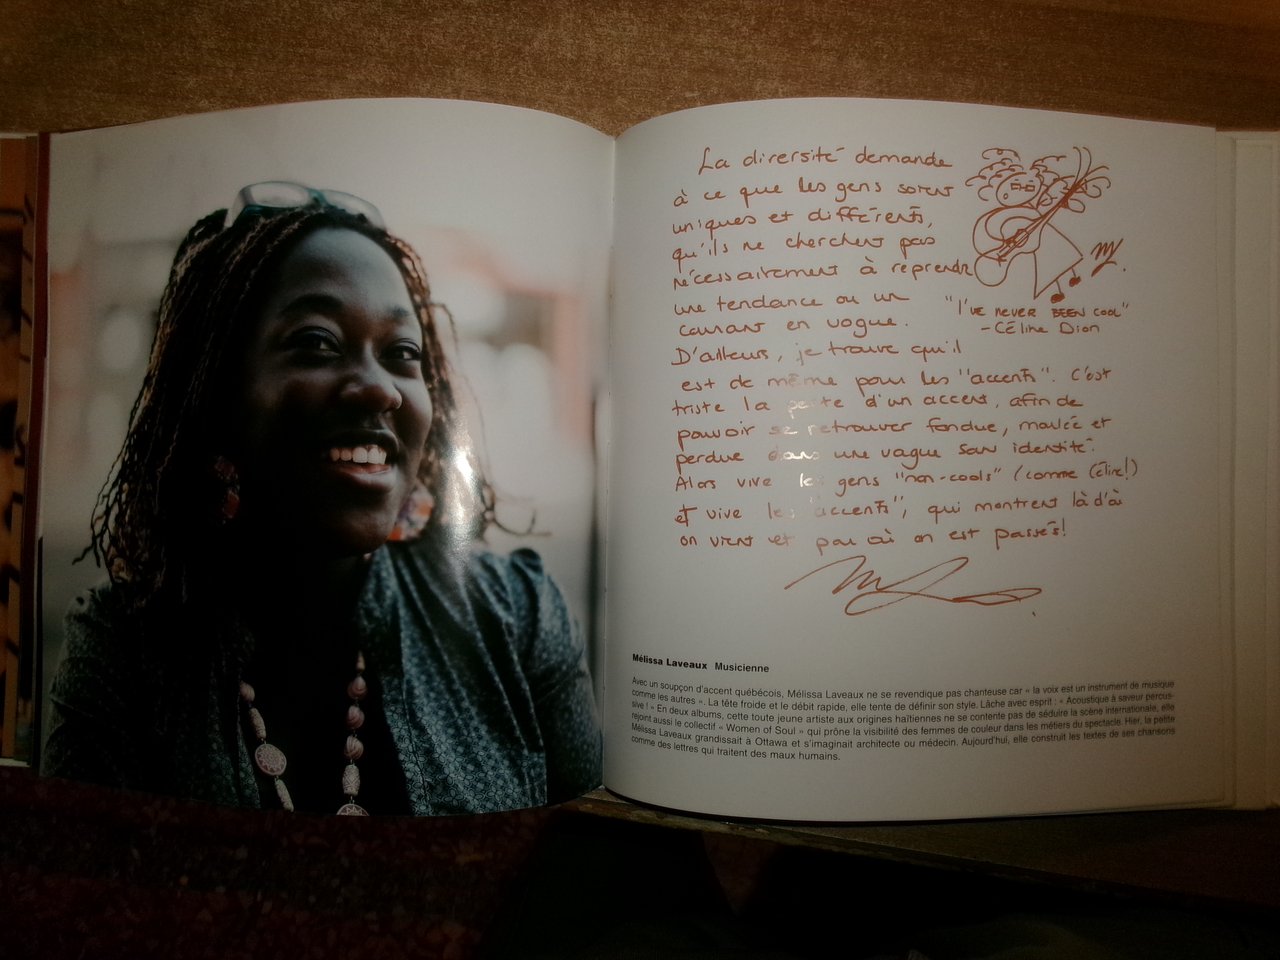 La diversité demande
à ce que les gens soient
uniques et différents,
qu'ils ne cherchent pas
nécessairement à reprendre
une tendance ou un
courant en vogue.
D'ailleurs, je trouve qu'il
est de même pour les "accents". C'est
triste la perte d'un accent, afin de
pouvoir se retrouver fondue, moulée et
perdue dans une vague sans identité.
Alors vive les gens "non-cools" (comme Céline!)
et vive les "accents", qui montrent là d'où
on vient et par où on est passés!
M.
"I've never BEEN cool"
- Céline Dion
Mélissa Laveaux Musicienne
Avec un soupçon d'accent québécois, Mélissa Laveaux ne se revendique pas chanteuse car « la voix est un instrument de musique
comme les autres ». La tête froide et le débit rapide, elle tente de définir son style. Lâche avec esprit : « Acoustique à saveur percus-
sive ! » En deux albums, cette toute jeune artiste aux origines haïtiennes ne se contente pas de séduire la scène internationale, elle
rejoint aussi le collectif « Women of Soul » qui prône la visibilité des femmes de couleur dans les métiers du spectacle. Hier, la petite
Mélissa Laveaux grandissait à Ottawa et s'imaginait architecte ou médecin. Aujourd'hui, elle construit les textes de ses chansons
comme des lettres qui traitent des maux humains.